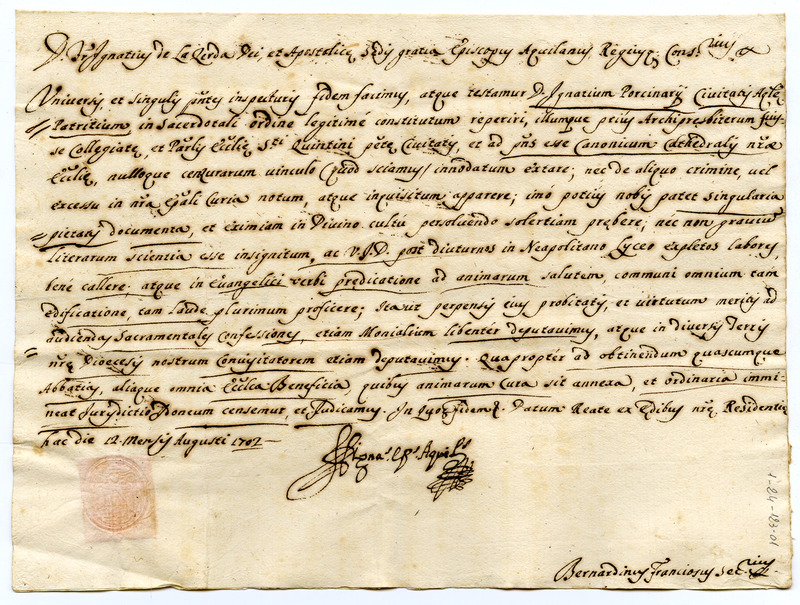 D. Fr. Ignatius de La Zerda Dei, et Apostolicę Sedis gratia Episcopus Aquilanus, Regiusq; Cons.rius &
Universis, et singulis pntes inspecturis fidem facimus, atque testamur D. Ignatium Porcinarij Civitatis Aqlę
Patritium, in Sacerdotali ordine legitimè constitutum reperiri, illumque prius Archipresbiterum fuis-
se Collegiatę, et Parlis Ecclię Sti Quintini pttę Civitatis, et ad pns esse Canonicum Cathedralis nrę
Ecclię, nulloque censurarum vinculo (quod sciamus) innodatum extare; nec de aliquo crimine, vel
excessu in nra Epali Curia notum, atque inquisitum apparere; imò potius nobis patet singularia
pietatis documenta, et eximiam in Divino cultu persolvendo solertiam prębere; nec non graviur
literarum scientia esse insignitum, ac V.J.D. post diuturnos in Neapolitano Lyceo expletos labores,
benè callere; atque in Evangelici verbi predicatione ad animarum salutem, communi omnium tam
edificatione, tam laude plurimum proficere; Itavt perpensis eius probitatis, et virtutum meritis ad
audiendas Sacramentales confessiones, etiam Monialium libenter deputavimus, atque in diversis Terris
nrę Dioecesis nostrum Convisitatorem etiam deputavimus. Quapropter ad obtinendum quascumque
Abbatias, aliaque omnia Ecclia Beneficia, quibus animarum Cura sit annexa, et ordinaria immi-
neat Jurisdictio Idoneum censemus, et Judicamus. In quor. fidem &. Datum Reate ex Edibus nrę Residentię
hac die 12 Mensis Augusti 1702
Ignas. Eps. Aquilus
Bernardinus Franciosus Sec.rius
1-84-183-01